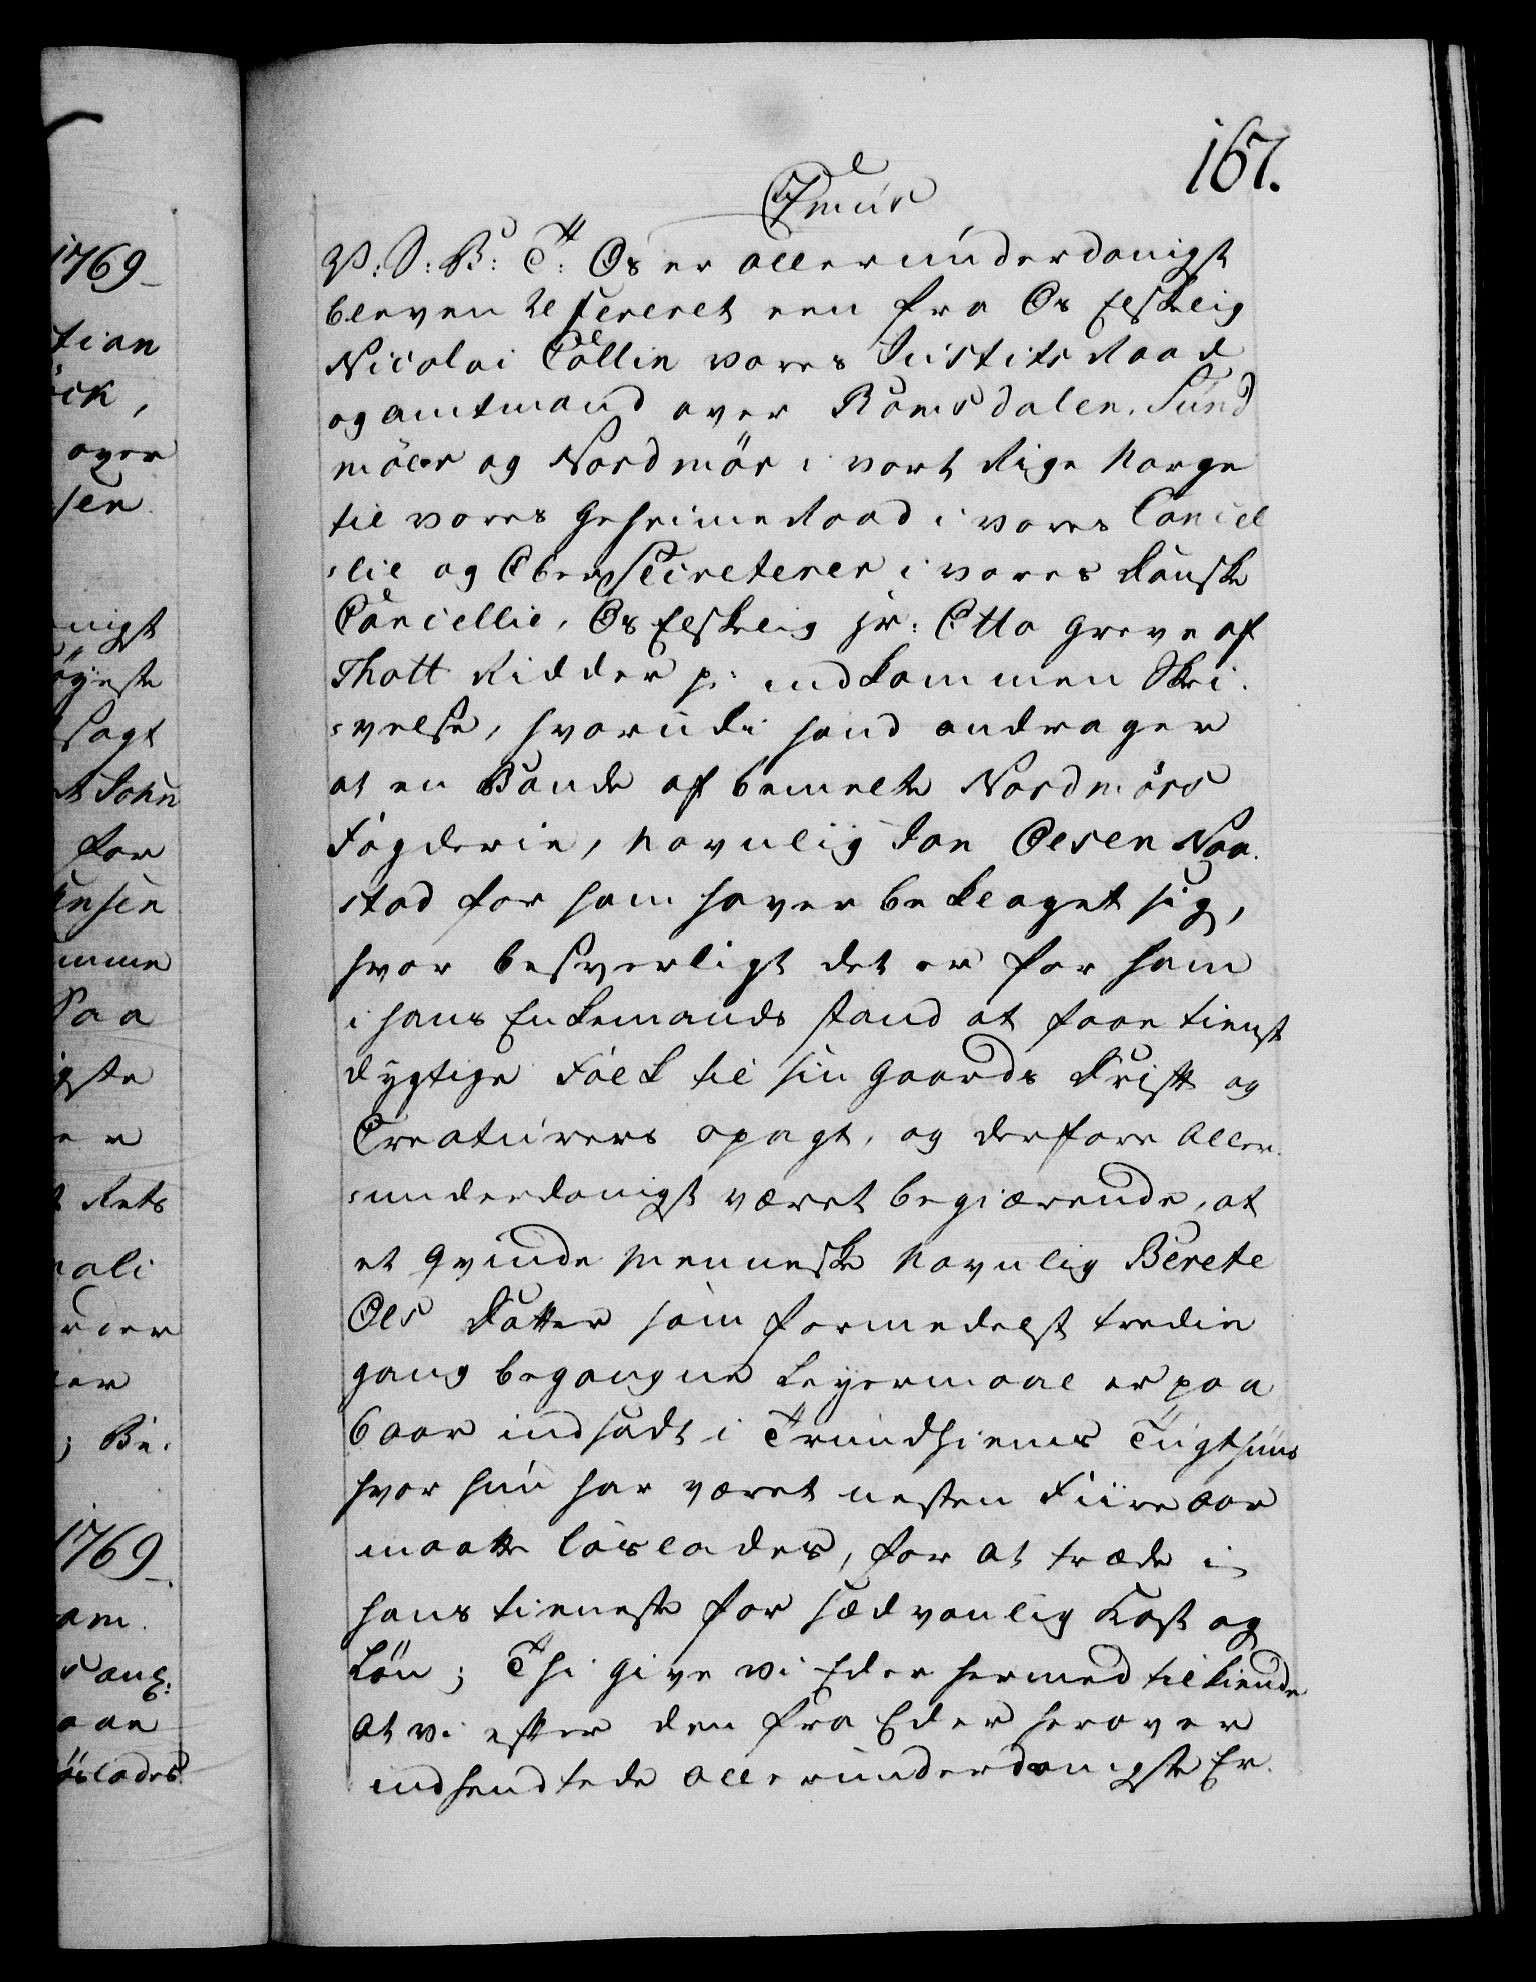 167.
7mus
V: S: B: T: Os er allerunderdanigst
bleven refereret een fra Os Elskelig
Nicolai Cöllin vores Justits Raad
og amtmand over Romsdalen, Sund
möer og Nordmör i vort Rige Norge
til vores Geheime Raad i vores Concel
=lie og Ober Secreterer i vores Danske
Cancellie, Os Elskelig Hr: Otto Greve af
Thott Ridder p: indkommen Skri¬
=velse, hvorudi hand andrager
at en Bonde af bemelte Nordmörs
Fogderie, navnlig Jon Olsen Naa¬
stad for ham haver beklaget sig,
hvor besverligt det er for ham
i hans Enkemands stand at faae tienst
dygtige Folk til sin Gaards Drift og
Creaturers opagt, og derfore Aller¬
=underdanigst været begiærende, at
et qvinde Menneske navnlig Berete
Ols Datter som formedelst tredie
gang begangne Leyermaal er paa
6 aar indsadt i Trundhiems Tugthuus
hvor hun har været nesten Fiire aar
maatte löslades, for at træde i
hans tieneste for sædvanlig Kost og
Lön; Thi give vi Eder hermed tilkiende
at vi efter den fra Eder herover
indsendtede allerunderdanigste Er¬
1769
tian
ick,
over
sen
nigst
öyeste
sagt
t John
for
ensen
mme
Paa
igste
er
t Rets
rali
rder
er
; Be¬
1769
am.
s ang:
aae
öslades